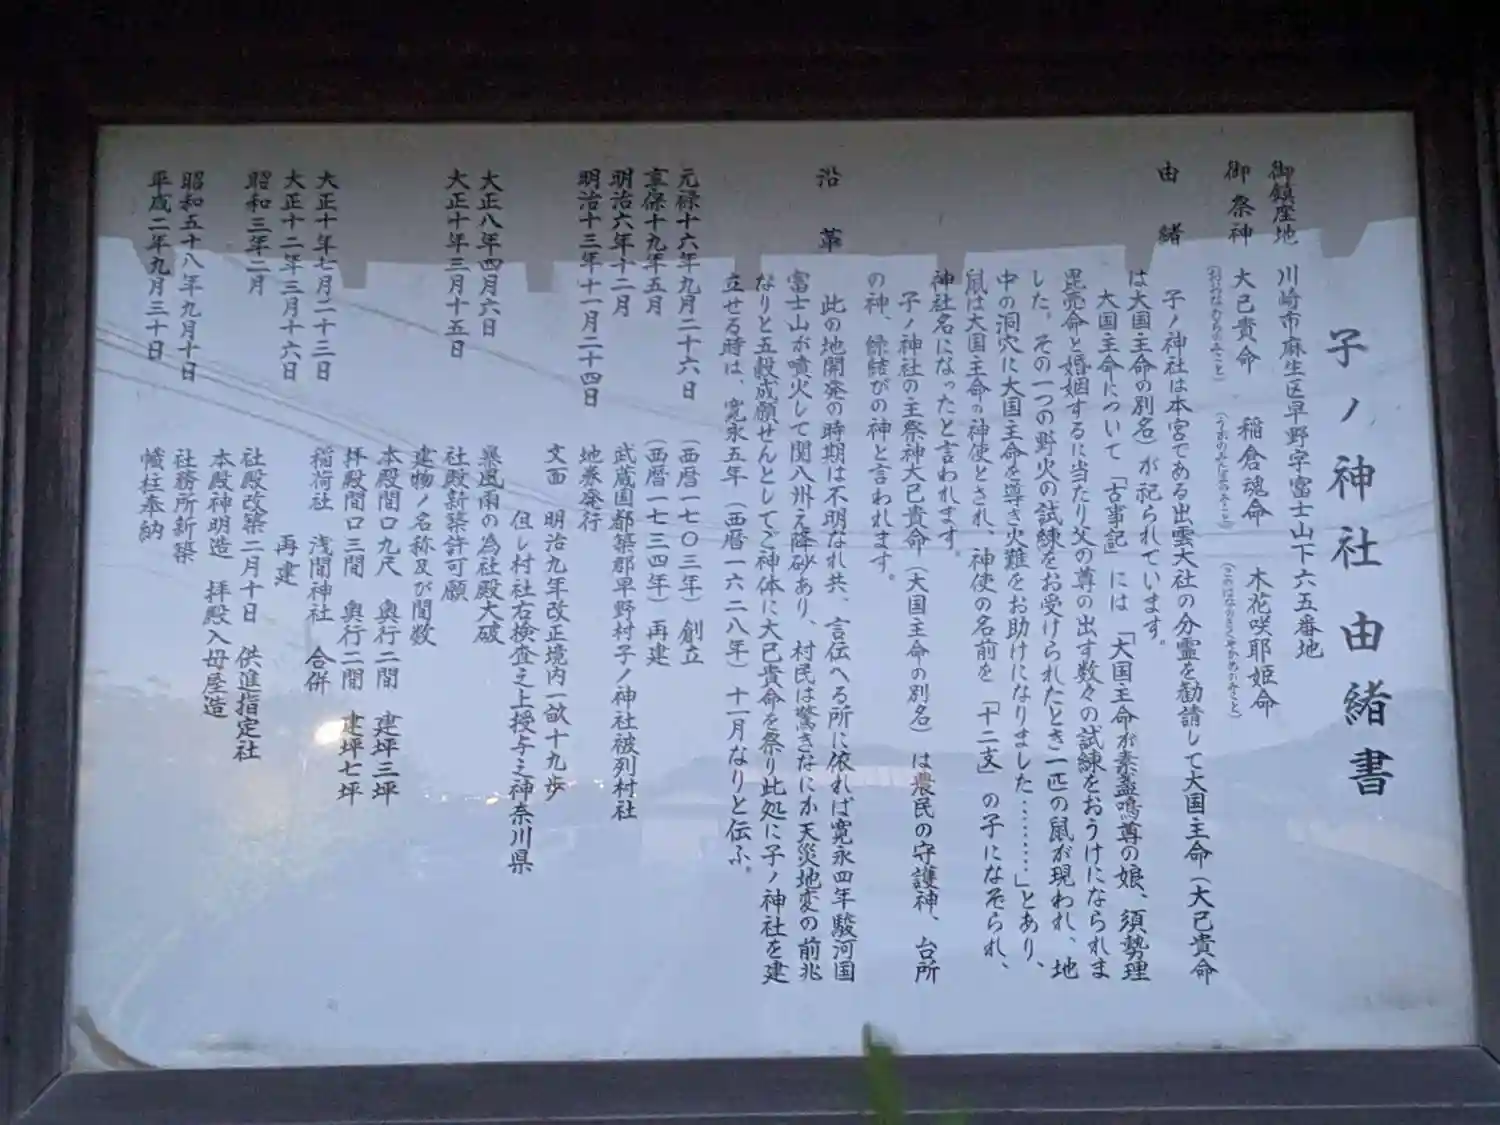 子ノ神社 由緒書
御鎮座地 川崎市麻生区早野字富士山下六五番地
御祭神 大己貴命 稲倉魂命 木花咲耶姫命
(おおなむちのみこと) (うがのみたまのみこと) (このはなのさくやひめのみこと)
由緒 子ノ神社は本宮である出雲大社の分霊を勧請して大国主命(大己貴命
は大国主命の別名)が祀られています。
大国主命について「古事記」には「大国主命が素盞鳴尊の娘、須勢理
毘売命と婚姻するに当たり父の尊の出す数々の試練をおうけになられま
した。その一つの野火の試練をお受けられたとき一匹の鼠が現われ、地
中の洞穴に大国主命を導き火難をお助けになりました………」とあり、
鼠は大国主命の神使とされ、神使の名前を「十二支」の子になぞられ、
神社名になったと言われます。
子ノ神社の主祭神大己貴命(大国主命の別名)は農民の守護神、台所
の神、縁結びの神と言われます。
沿革 此の地開発の時期は不明なれ共、言伝へる所に依れば寛永四年駿河国
富士山が噴火して関八州え降砂あり、村民は驚きなにか天災地変の前兆
なりと五穀成願せんとしてご神体に大己貴命を祭り此処に子ノ神社を建
立せる時は、寛永五年(西暦一六二八年)十一月なりと伝ふ。
元禄十六年九月二十六日 (西暦一七〇三年)創立
享保十九年五月 (西暦一七三四年)再建
明治六年十二月 武蔵国都築郡早野村子ノ神社被列村社
明治十三年十一月二十四日 地券発行
文面 明治九年改正境内一畝十九歩
但し村社右検査之上授与之神奈川県
大正八年四月六日 暴風雨の為社殿大破
大正十年三月十五日 社殿新築許可願
建物ノ名称及び間数
本殿間口九尺 奥行二間 建坪三坪
拝殿間口三間 奥行二間 建坪七坪
大正十年七月二十三日 稲荷社 浅間神社 合併
大正十二年三月十六日 再建
昭和三年二月 社殿改築二月十日 供進指定社
本殿神明造 拝殿入母屋造
昭和五十八年九月十日 社務所新築
平成二年九月三十日 幟柱奉納